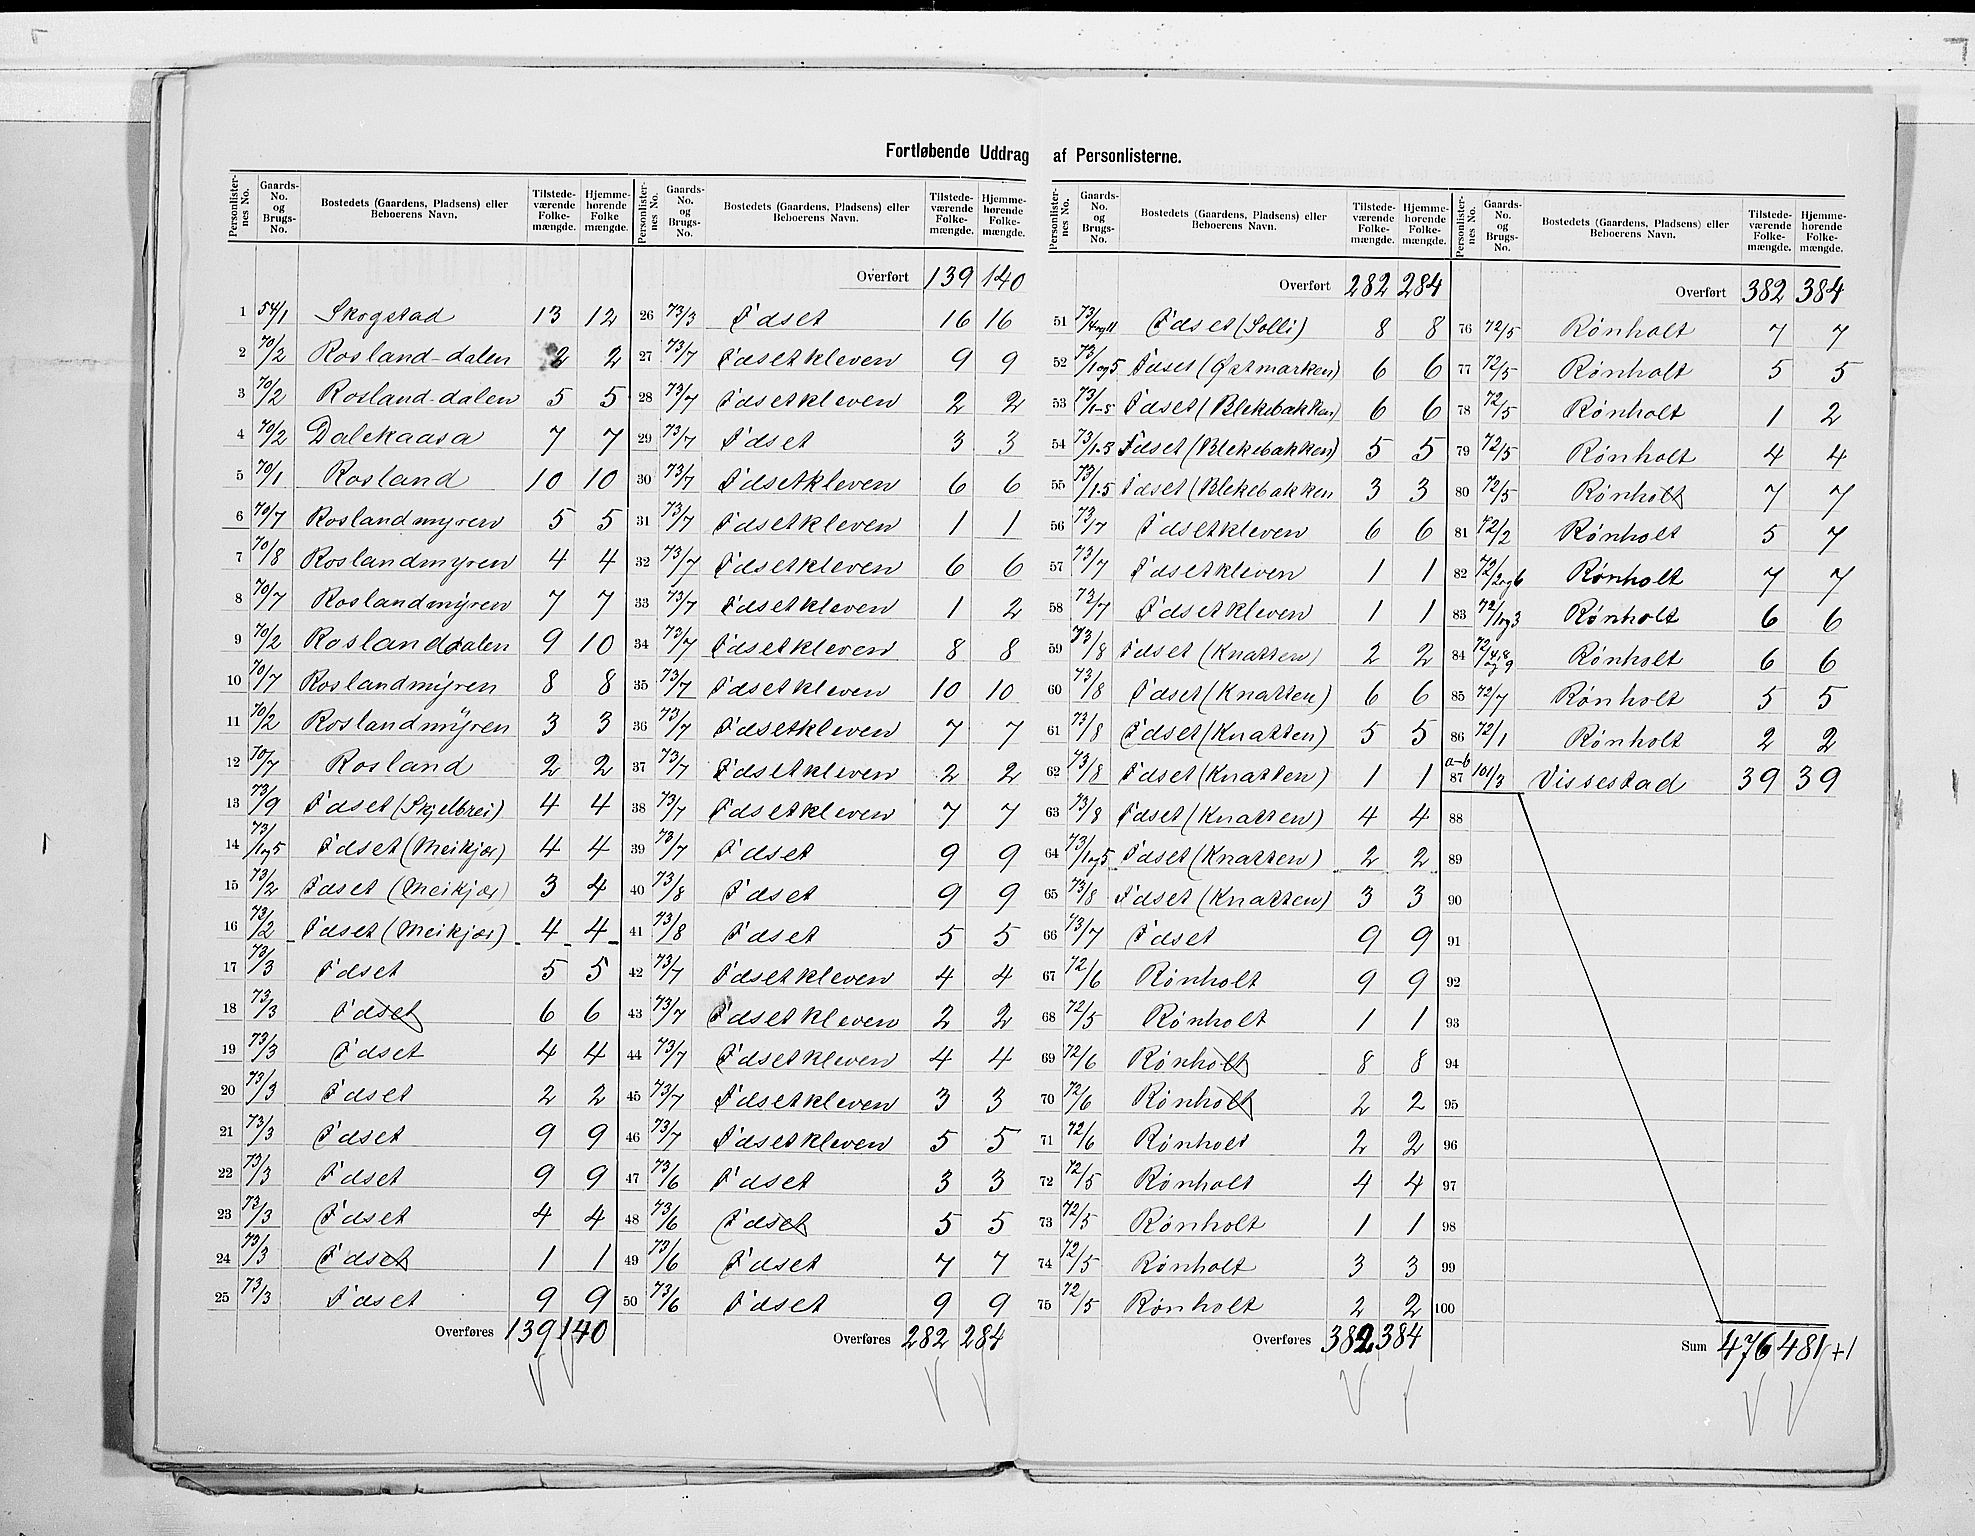 Fortløbende Uddrag af Personlisterne.
Personlister-nes No. Gaards-No. og Brugs-No. Bostedets (Gaardens, Pladsens) eller Beboerens Navn. Tilstede-værende Folke-mængde. Hjemme-hørende Folke mængde.
1 54/1 Skogstad 13 12
2 70/2 Rosland-dalen 2 2
3 70/2 Rosland-dalen 5 5
4 70/2 Dalekaasa 7 7
5 70/1 Rosland 10 10
6 70/7 Roslandmyren 5 5
7 70/8 Roslandmyren 4 4
8 70/7 Roslandmyren 7 7
9 70/2 Roslanddalen 9 10
10 70/7 Roslandmyren 8 8
11 70/2 Roslandmyren 3 3
12 70/7 Rosland 2 2
13 73/9 Idset (Skjelbrei) 4 4
14 73/1og5 Idset (Meikjær) 4 4
15 73/2 Idset (Meikjær) 3 4
16 73/2 Idset (Meikjær) 4 4
17 73/3 Idset 5 5
18 73/3 Idset 6 6
19 73/3 Idset 4 4
20 73/3 Idset 2 2
21 73/3 Idset 9 9
22 73/3 Idset 9 9
23 73/3 Idset 4 4
24 73/3 Idset 1 1
25 73/3 Idset 9 9
Overføres 139 140
Personlister-nes No. Gaards-No. og Brugs-No. Bostedets (Gaardens, Pladsens) eller Beboerens Navn. Tilstede-værende Folke-mængde. Hjemme-hørende Folke-mængde.
Overført 139 140
26 73/3 Idset 16 16
27 73/7 Idsetkleven 9 9
28 73/7 Idsetkleven 2 2
29 73/7 Idset 3 3
30 73/7 Idsetkleven 6 6
31 73/7 Idsetkleven 1 1
32 73/7 Idsetkleven 6 6
33 73/7 Idsetkleven 1 2
34 73/7 Idsetkleven 8 8
35 73/7 Idsetkleven 10 10
36 73/7 Idsetkleven 7 7
37 73/7 Idsetkleven 2 2
38 73/7 Idsetkleven 7 7
39 73/7 Idset 9 9
40 73/8 Idset 9 9
41 73/8 Idset 5 5
42 73/7 Idsetkleven 4 4
43 73/7 Idsetkleven 2 2
44 73/7 Idsetkleven 4 4
45 73/7 Idsetkleven 3 3
46 73/7 Idsetkleven 5 5
47 73/6 Idset 3 3
48 73/6 Idset 5 5
49 73/6 Idset 7 7
50 73/6 Idset 9 9
Overføres 282 284
Personlister-nes No. Gaards-No. og Brugs-No. Bostedets (Gaardens, Pladsens) eller Beboerens Navn. Tilstede-værende Folke-mængde. Hjemme-hørende Folke-mængde.
Overført 282 284
51 73/4og11 Idset (Solli) 8 8
52 73/1og5 Idset (Østmarken) 6 6
53 73/1-5 Idset (Blekebakken) 6 6
54 73/1-5 Idset (Blekebakken) 5 5
55 73/1-5 Idset (Blekebakken 3 3
56 73/7 Idsetkleven 6 6
57 73/7 Idsetkleven 1 1
58 73/7 Idsetkleven 1 1
59 73/8 Idset (Knatten) 2 2
60 73/8 Idset (Knatten) 6 6
61 73/8 Idset (Knatten) 5 5
62 73/8 Idset (Knatten) 1 1
63 73/8 Idset (Knatten) 4 4
64 73/1og5 Idset (Knatten) 2 2
65 73/8 Idset (Knatten) 3 3
66 73/7 Idset 9 9
67 72/6 Rønholt 9 9
68 72/5 Rønholt 1 1
69 72/6 Rønholt 8 8
70 72/6 Rønholt 2 2
71 72/6 Rønholt 2 2
72 72/5 Rønholt 4 4
73 72/5 Rønholt 1 1
74 72/5 Rønholt 3 3
75 72/5 Rønholt 2 2
Overføres 382 384
Personlister-nes No. Gaards-No. og Brugs-No. Bostedets (Gaardens, Pladsens) eller Beboerens Navn. Tilstede-værende Folke-mængde. Hjemme-hørende Folke-mængde.
Overført 382 384
76 72/5 Rønholt 7 7
77 72/5 Rønholt 5 5
78 72/5 Rønholt 1 2
79 72/5 Rønholt 4 4
80 72/5 Rønholt 7 7
81 72/2 Rønholt 5 7
82 72/2og6 Rønholt 7 7
83 72/1og3 Rønholt 6 6
84 72/4,8 og 9 Rønholt 6 6
85 72/7 Rønholt 5 5
86 72/1 Rønholt 2 2
a-b
87 101/3 Vissestad 39 39
88
89
90
91
92
93
94
95
96
97
98
99
100
Sum 476 481 +1